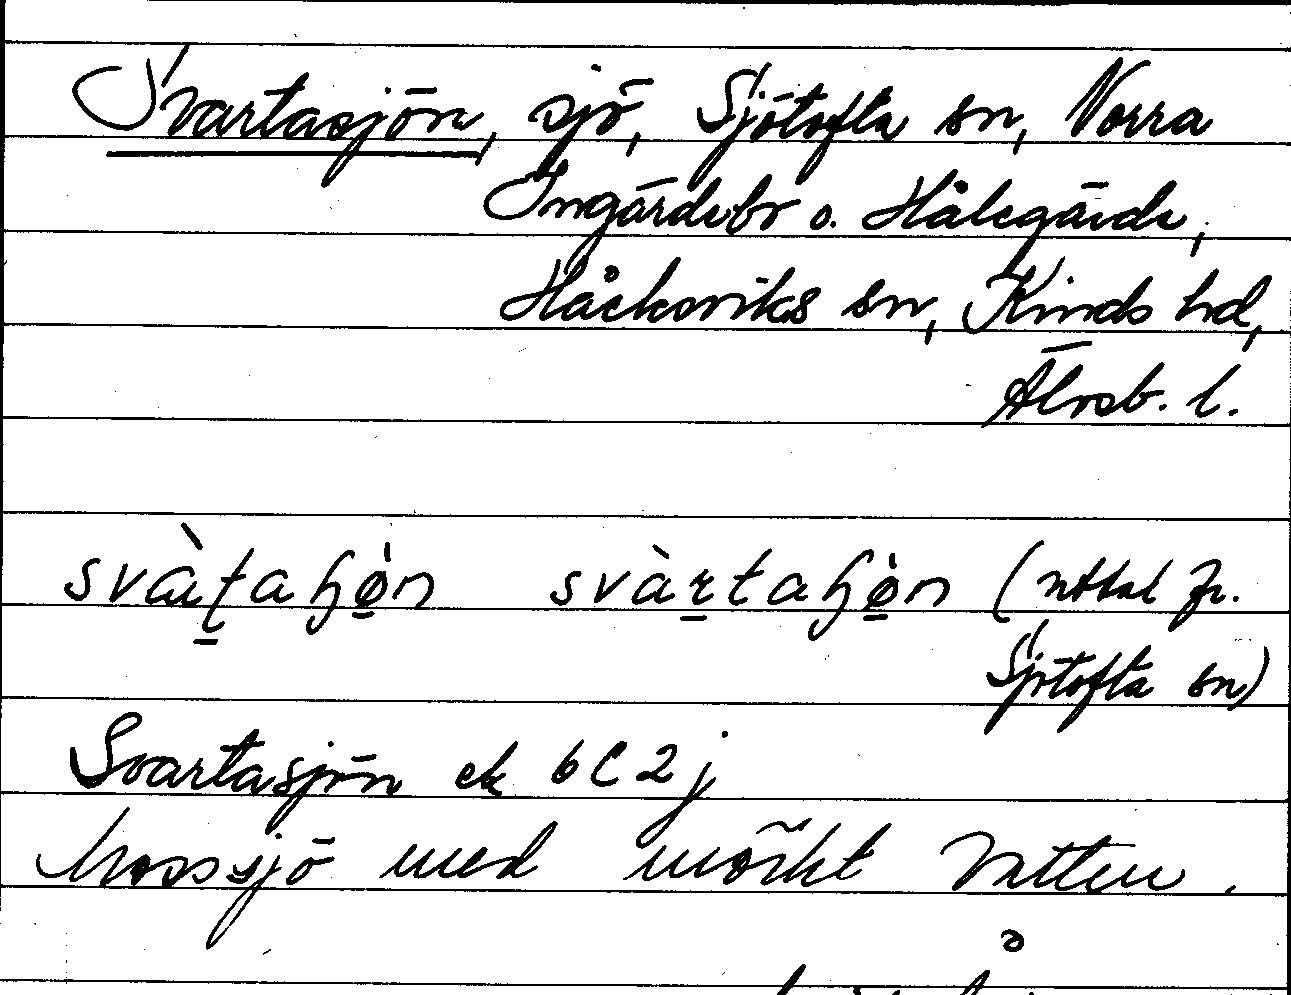 Svartasjön, sjö, Sjötofta sn, Norra
Ingärdebo o. Hålegärde,
Håcksviks sn, Kinds hd,
Älvsb. l.
(uttal fr.
Sjötofta sn)
Svartasjön ek 6C2j
Mossjö med mörkt vatten.